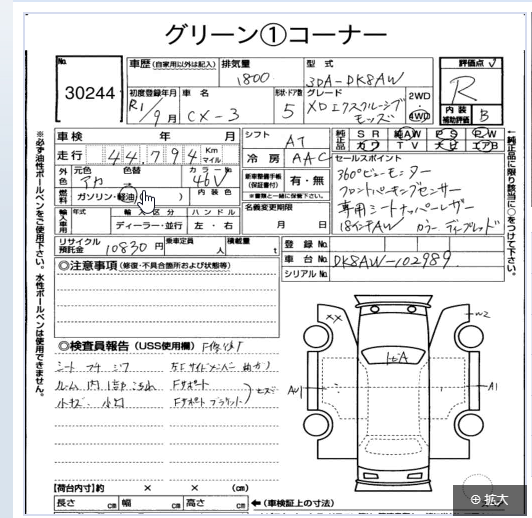 グリーン①コーナー
No.
30244
車歴(自家用以外は記入)
排気量
1800
型式
3DA-DK8AW
評価点
R
初度登録年月
R1/9月
車名
CX-3
形状・ドア数
5
グレード
XDエクスクルーシブモッズ
2WD
4WD
内装
補助評価
B
車検 年 月
シフト
AT
純正品
SR
純AW
PS
PW
カワ
TV
ナビ
エアB
走行 44,794 Km
マイル
冷房
AAC
セールスポイント
360°ビューモニター
フロントパーキングセンサー
専用シートナッパレザー
18インチAW
外色
元色
アカ
色替
カラーNo.
46V
燃料
ガソリン・軽油( )
内装色
新車整備手帳
(保証書付)
有・無
輸入車用
年式
輸入区分
ハンドル
ディーラー・並行
左・右
名義変更期限
月 日
リサイクル
預託金
10830円
乗車定員
人
積載量
t
登録No.
車台No.
DK8AW-102989
シリアルNo.
◎注意事項(修復・不具合箇所および状態等)
◎検査員報告(USS使用欄)
F修復
小キズ
Fサポート
※必ず油性ボールペンをご使用下さい。水性ボールペンは使用できません。
↑純正品に限り該当に○をつけて下さい。
XX
W2
A1
【荷台内寸】約 × × (cm)
長さ cm
幅 cm
高さ cm
←(車検証上の寸法)
拡大